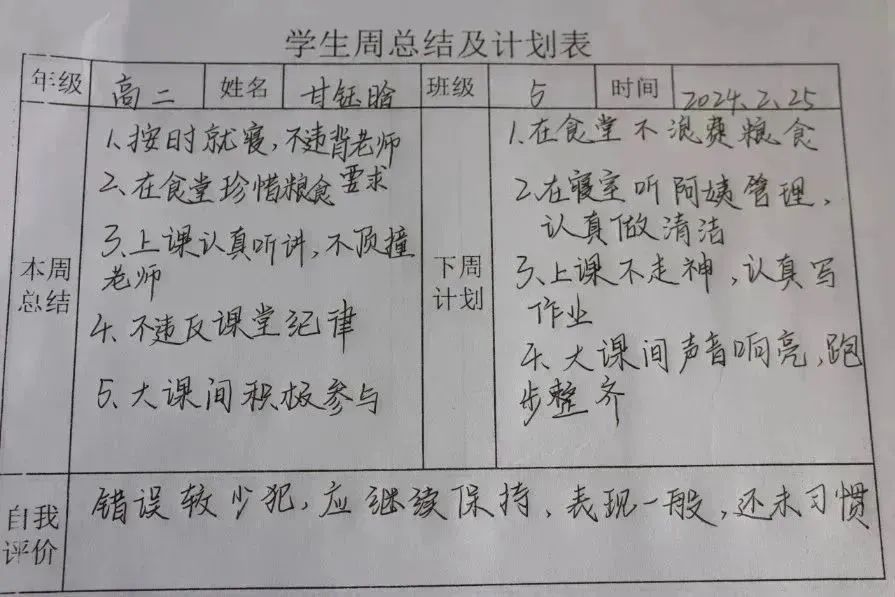 学生周总结及计划表
年级 高二 姓名 甘钰晗 班级 5 时间 2024.2.25
本周
总结
1、按时就寝,不违背老师
要求
2、在食堂珍惜粮食
3、上课认真听讲,不顶撞
老师
4、不违反课堂纪律
5、大课间积极参与
下周
计划
1、在食堂不浪费粮食
2、在寝室听阿姨管理,
认真做清洁
3、上课不走神,认真写
作业
4、大课间声音响亮,跑
步整齐
自我
评价
错误较少犯,应继续保持、表现一般,还未习惯